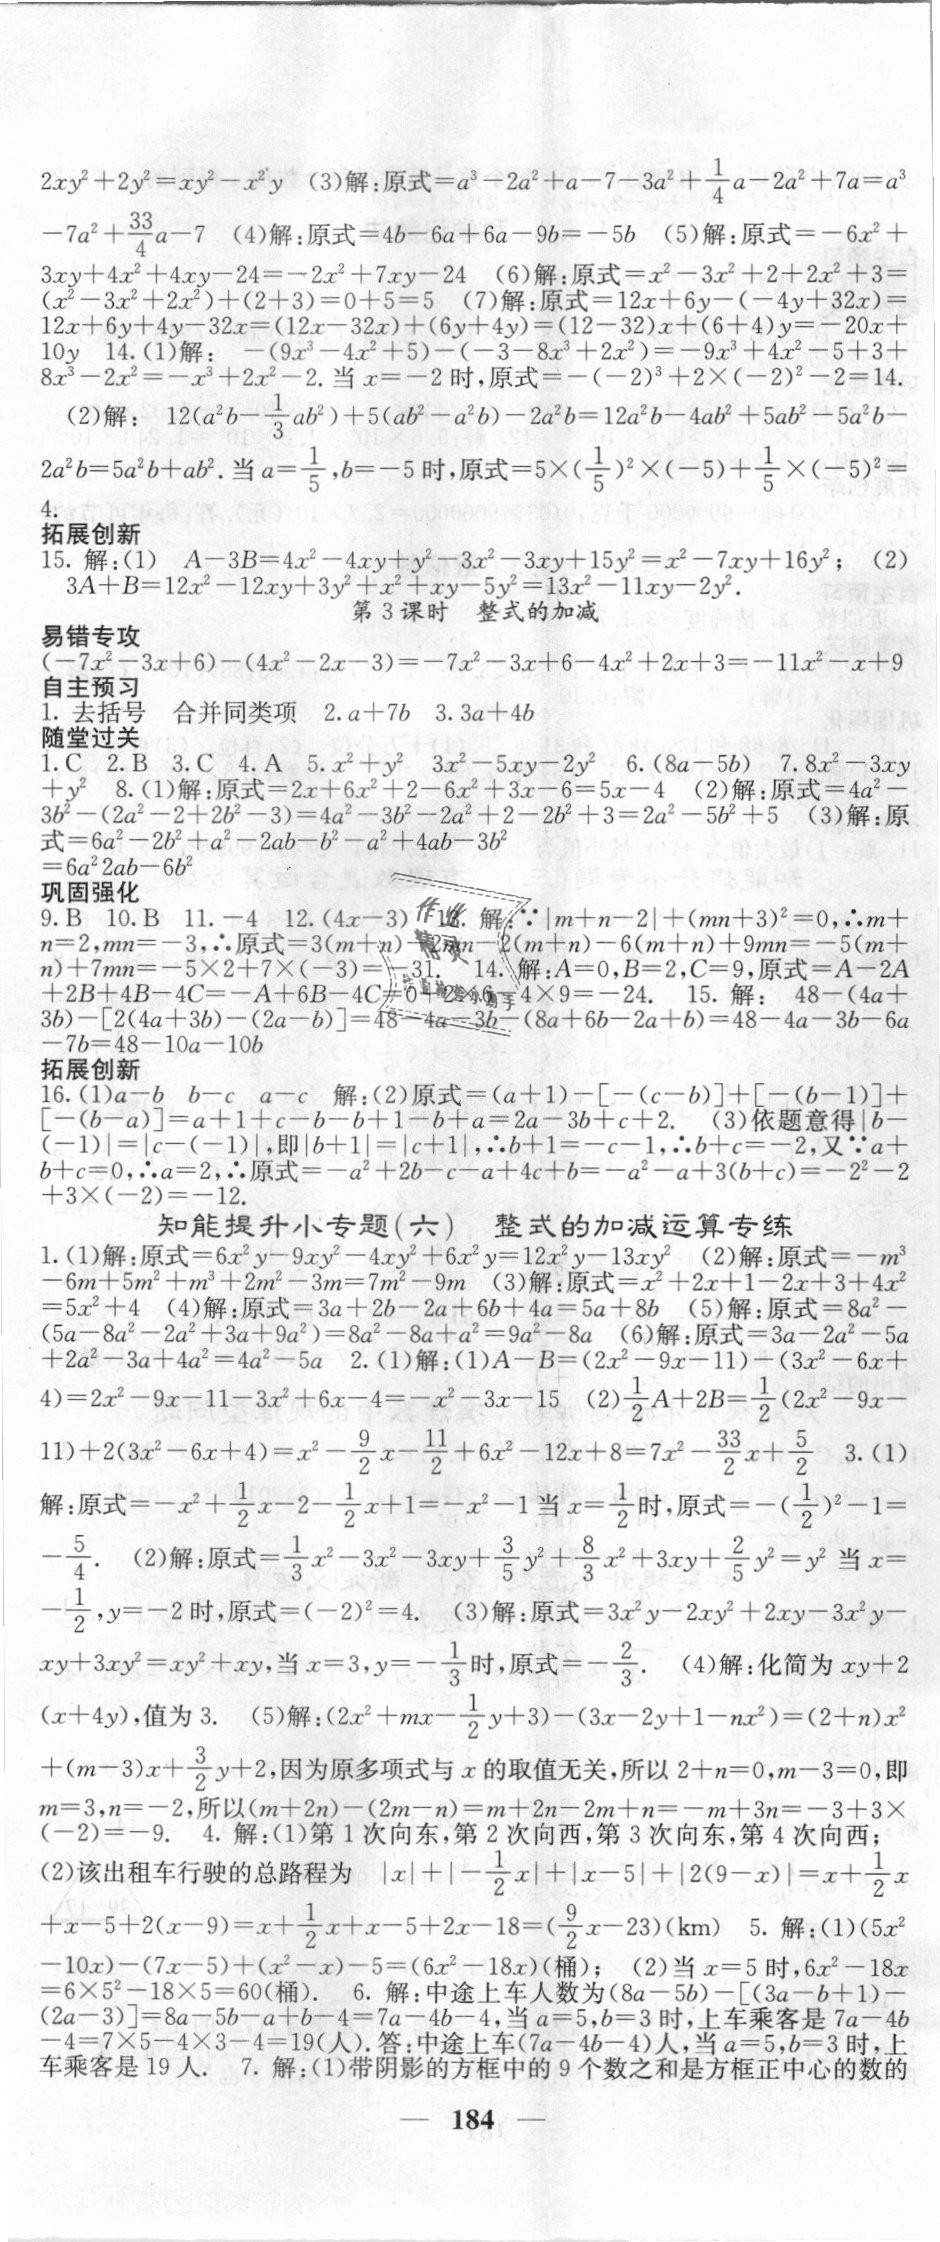 2xy²+2y²=xy²-x²y (3)解:原式=a³-2a²+a-7-3a²+1/4a-2a²+7a=a³
-7a²+33/4a-7 (4)解:原式=4b-6a+6a-9b=-5b (5)解:原式=-6x²+
3xy+4x²+4xy-24=-2x²+7xy-24 (6)解:原式=x²-3x²+2+2x²+3=
(x²-3x²+2x²)+(2+3)=0+5=5 (7)解:原式=12x+6y-(-4y+32x)=
12x+6y+4y-32x=(12x-32x)+(6y+4y)=(12-32)x+(6+4)y=-20x+
10y 14.(1)解: -(9x³-4x²+5)-(-3-8x³+2x²)=-9x³+4x²-5+3+
8x³-2x²=-x³+2x²-2.当x=-2时,原式=-(-2)³+2×(-2)²-2=14.
(2)解: 12(a²b-1/3ab²)+5(ab²-a²b)-2a²b=12a²b-4ab²+5ab²-5a²b-
2a²b=5a²b+ab².当a=1/5,b=-5时,原式=5×(1/5)²×(-5)+1/5×(-5)²=
4.
拓展创新
15. 解:(1) A-3B=4x²-4xy+y²-3x²-3xy+15y²=x²-7xy+16y²; (2)
3A+B=12x²-12xy+3y²+x²+xy-5y²=13x²-11xy-2y².
第3课时 整式的加减
易错专攻
(-7x²-3x+6)-(4x²-2x-3)=-7x²-3x+6-4x²+2x+3=-11x²-x+9
自主预习
1. 去括号 合并同类项 2.a+7b 3.3a+4b
随堂过关
1.C 2.B 3.C 4.A 5.x²+y² 3x²-5xy-2y² 6.(8a-5b) 7.8x²-3xy
+y² 8.(1)解:原式=2x+6x²+2-6x²+3x-6=5x-4 (2)解:原式=4a²-
3b²-(2a²-2+2b²-3)=4a²-3b²-2a²+2-2b²+3=2a²-5b²+5 (3)解:原
式=6a²-2b²+a²-2ab-b²-a²+4ab-3b²
=6a²2ab-6b²
巩固强化
9.B 10.B 11.-4 12.(4x-3) 13. 解:∵|m+n-2|+(mn+3)²=0,∴m+
n=2,mn=-3,∴原式=3(m+n)-2mn-2(m+n)-6(m+n)+9mn=-5(m+
n)+7mn=-5×2+7×(-3)=-31. 14. 解:A=0,B=2,C=9,原式=A-2A
+2B+4B-4C=-A+6B-4C=0+2×6-4×9=-24. 15. 解: 48-(4a+
3b)-[2(4a+3b)-(2a-b)]=48-4a-3b-(8a+6b-2a+b)=48-4a-3b-6a
-7b=48-10a-10b
拓展创新
16.(1)a-b b-c a-c 解:(2)原式=(a+1)-[-(c-b)]+[-(b-1)]+
[-(b-a)]=a+1+c-b-b+1-b+a=2a-3b+c+2. (3)依题意得|b-
(-1)|=|c-(-1)|,即|b+1|=|c+1|,∴b+1=-c-1,∴b+c=-2,又∵a+
b+c=0,∴a=2,∴原式=-a²+2b-c-a+4c+b=-a²-a+3(b+c)=-2²-2
+3×(-2)=-12.
知能提升小专题(六) 整式的加减运算专练
1.(1)解:原式=6x²y-9xy²-4xy²+6x²y=12x²y-13xy² (2)解:原式=-m³
-6m+5m²+m³+2m²-3m=7m²-9m (3)解:原式=x²+2x+1-2x+3+4x²
=5x²+4 (4)解:原式=3a+2b-2a+6b+4a=5a+8b (5)解:原式=8a²-
(5a-8a²-2a²+3a+9a²)=8a²-8a+a²=9a²-8a (6)解:原式=3a-2a²-5a
+2a²-3a+4a²=4a²-5a 2.(1)解:(1)A-B=(2x²-9x-11)-(3x²-6x+
4)=2x²-9x-11-3x²+6x-4=-x²-3x-15 (2)1/2A+2B=1/2(2x²-9x-
11)+2(3x²-6x+4)=x²-9/2x-11/2+6x²-12x+8=7x²-33/2x+5/2 3.(1)
解:原式=-x²+1/2x-2-1/2x+1=-x²-1当x=1/2时,原式=-(1/2)²-1=
-5/4. (2)解:原式=1/3x²-3x²-3xy+3/5y²+8/3x²+3xy+2/5y²=y² 当x=
-1/2,y=-2时,原式=(-2)²=4. (3)解:原式=3x²y-2xy²+2xy-3x²y-
xy+3xy²=xy²+xy,当x=3,y=-1/3时,原式=-2/3. (4)解:化简为xy+2
(x+4y),值为3. (5)解:(2x²+mx-1/2y+3)-(3x-2y+1-nx²)=(2+n)x²
+(m-3)x+3/2y+2,因为原多项式与x的取值无关,所以2+n=0,m-3=0,即
m=3,n=-2,所以(m+2n)-(2m-n)=m+2n-2m+n=-m+3n=-3+3×
(-2)=-9. 4. 解:(1)第1次向东,第2次向西,第3次向东,第4次向西;
(2)该出租车行驶的总路程为 |x|+|-1/2x|+|x-5|+|2(9-x)|=x+1/2x
+x-5+2(x-9)=x+1/2x+x-5+2x-18=(9/2x-23)(km) 5. 解:(1)(5x²
-10x)-(7x-5)+(x²-x)-5=(6x²-18x)(桶); (2)当x=5时,6x²-18x
=6×5²-18×5=60(桶). 6. 解:中途上车人数为(8a-5b)-[(3a-b+1)-
(2a-3)]=8a-5b-a+b-4=7a-4b-4,当a=5,b=3时,上车乘客是7a-4b
-4=7×5-4×3-4=19(人).答:中途上车(7a-4b-4)人,当a=5,b=3时,上
车乘客是19人. 7. 解:(1)带阴影的方框中的9个数之和是方框正中心的数的
— 184 —